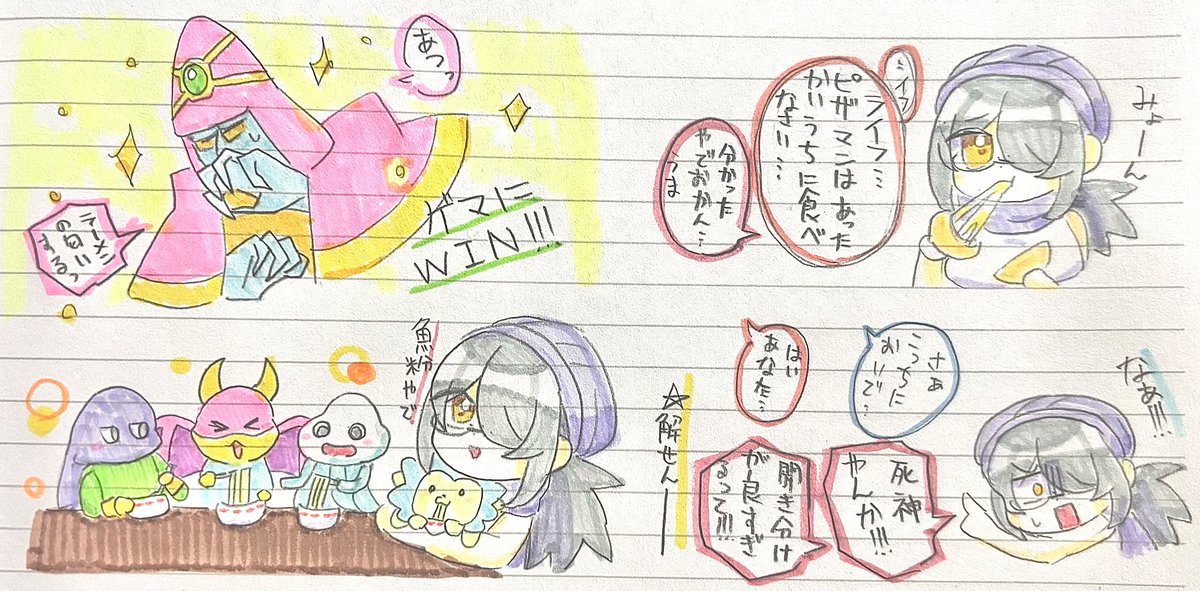 みょーん
ライフ…
ピザマンはあった
かいうちに食べ
なさい…
分かった
やでおかん…
うま
なぁ!!!
さぁ
こっちに
おいで…
はい
あなた…
死神
やんか!!!
聞き分け
が良すぎ
るって!!!
☆解せんー
あつっ
ゲマに
WIN!!!
ラーメン
の匂い
するっ
魚粉やで